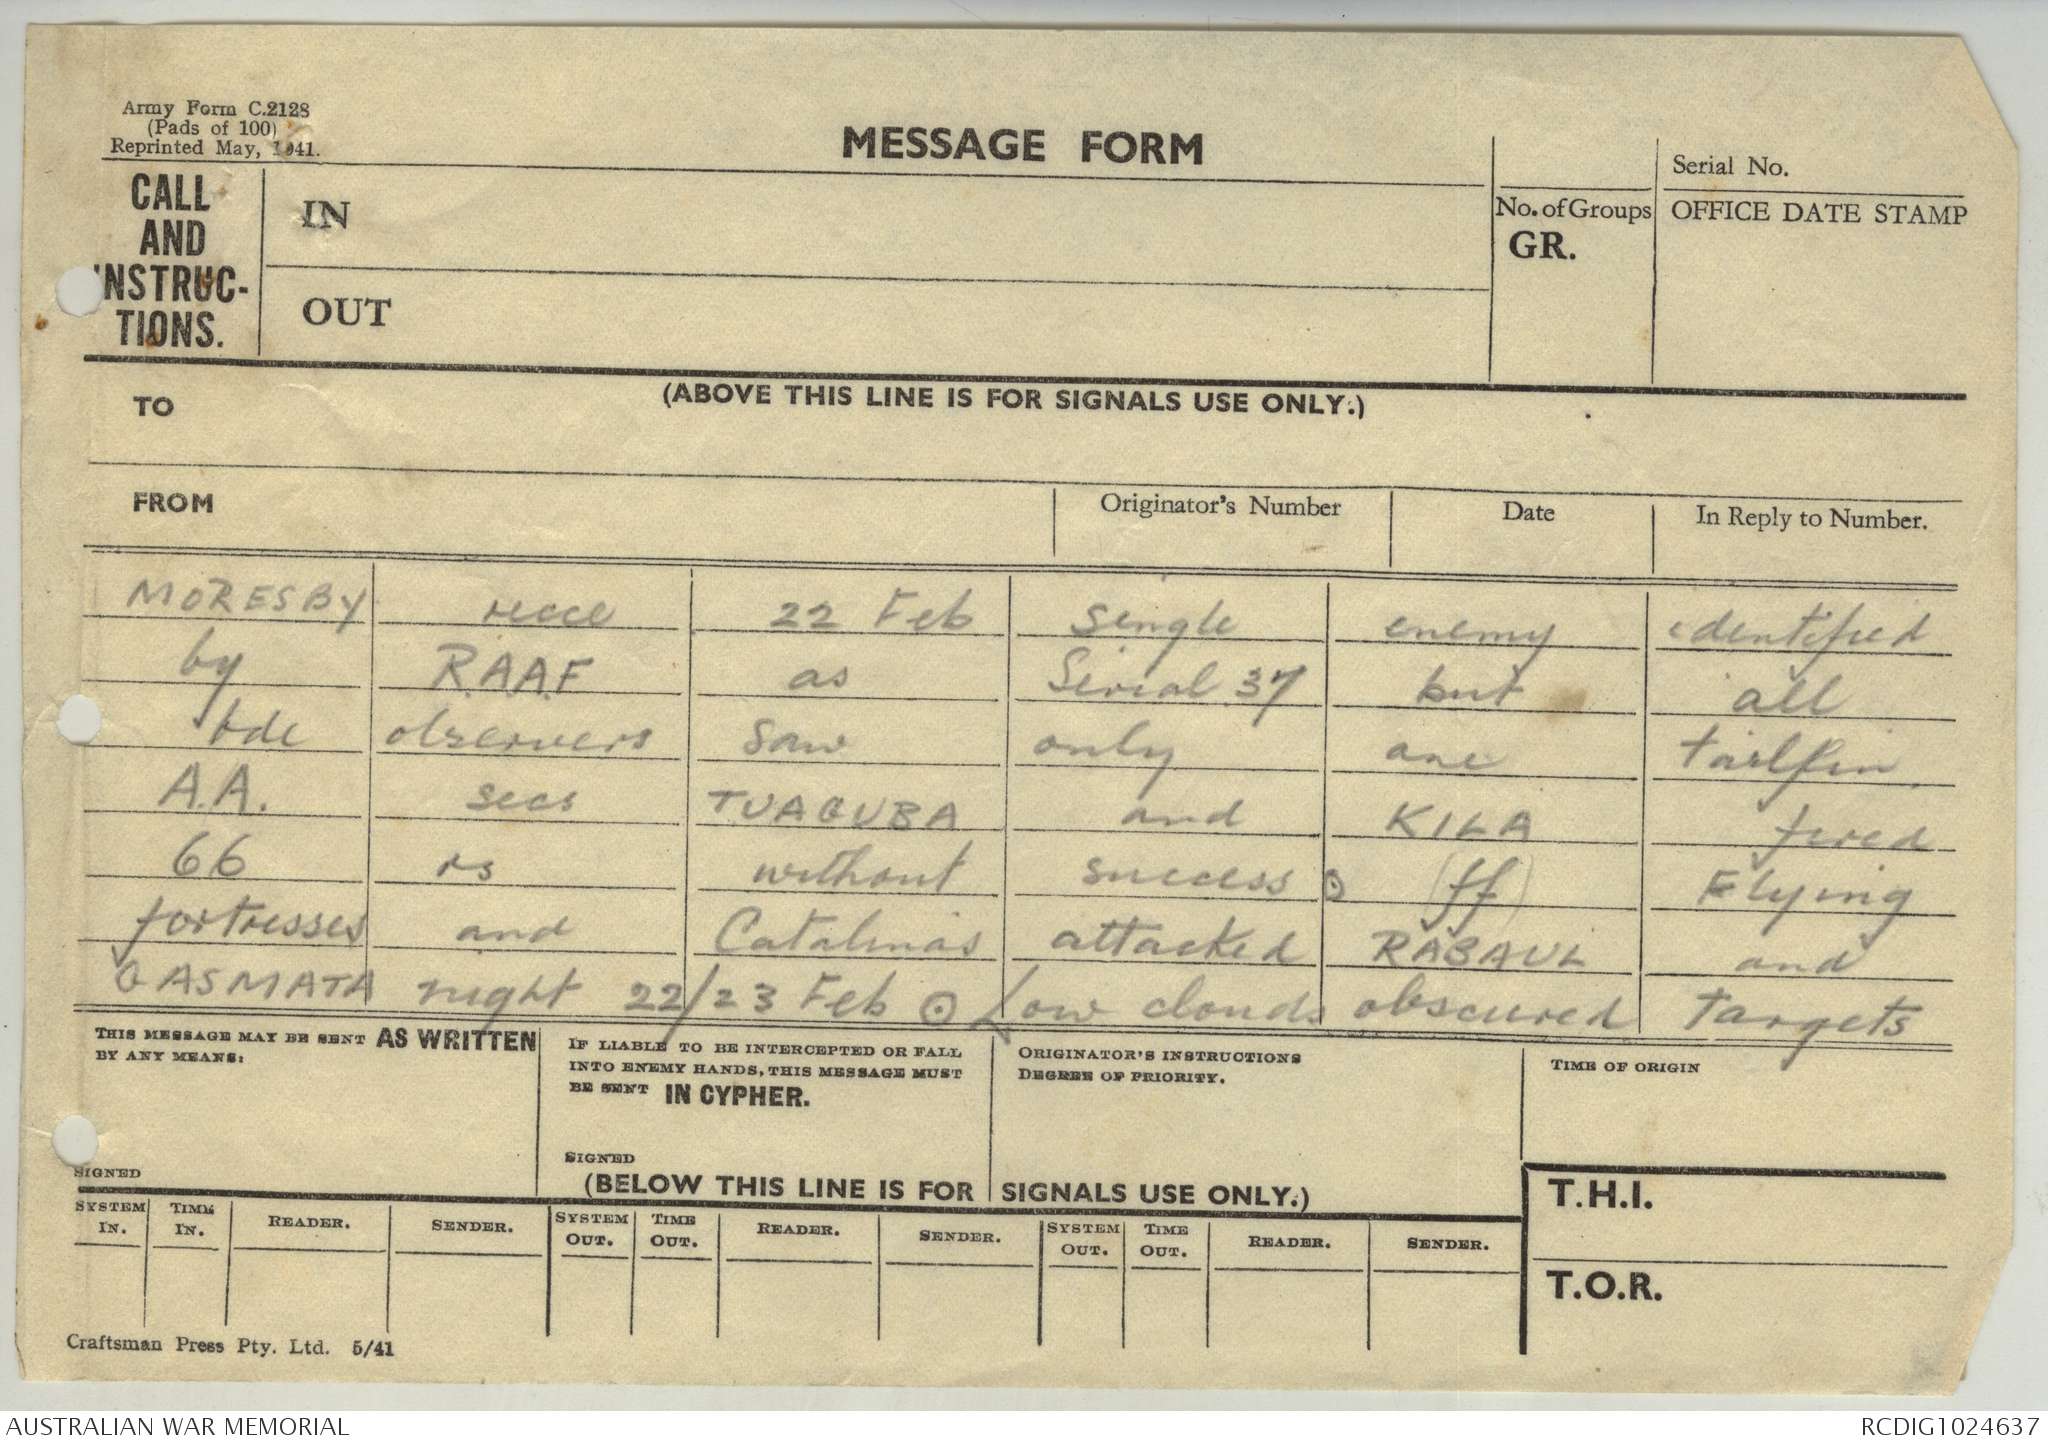 Army Form C.2128
(Pads of 100)
Reprinted May, 1941.
MESSAGE FORM
Serial No.
CALL
AND
INSTRUC-
TIONS.
IN
OUT
No. of Groups
GR.
OFFICE DATE STAMP
(ABOVE THIS LINE IS FOR SIGNALS USE ONLY.)
TO
FROM
Originator's Number
Date
In Reply to Number.
MORESBY recce 22 Feb single enemy identified
by R.A.A.F as Serial 37 but all
bde observers saw only one tailfin
A.A. secs TUAGUBA and KILA fired
66 rs without success ⊙ (ff) Flying
fortresses and Catalinas attacked RABAUL and
GASMATA night 22/23 Feb ⊙ Low clouds obscured targets
THIS MESSAGE MAY BE SENT AS WRITTEN
BY ANY MEANS:
SIGNED
IF LIABLE TO BE INTERCEPTED OR FALL
INTO ENEMY HANDS, THIS MESSAGE MUST
BE SENT IN CYPHER.
SIGNED
ORIGINATOR'S INSTRUCTIONS
DEGREE OF PRIORITY.
TIME OF ORIGIN
(BELOW THIS LINE IS FOR SIGNALS USE ONLY.)
SYSTEM IN. TIME IN. READER. SENDER. SYSTEM OUT. TIME OUT. READER. SENDER. SYSTEM OUT. TIME OUT. READER. SENDER.
T.H.I.
T.O.R.
Craftsman Press Pty. Ltd. 5/41
AUSTRALIAN WAR MEMORIAL
RCDIG1024637